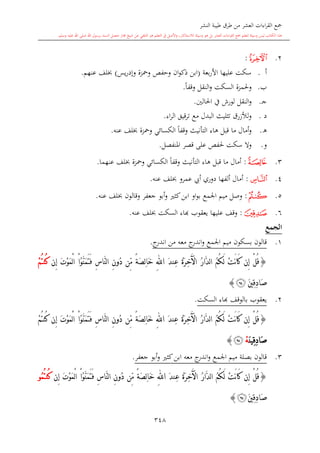 جمع القراءات العشر من طرق طيبة النشر
٢. ٱلْأٓخِرَةُ :
أ . سكت عليها الأربعة (ابن ذكوان وحفص وحمزة وإدريس) بخلف عنهم.
ب. ولحمزة السكت والنقل وقفاً.
جـ. والنقل لورش في الحالين.
د . وللأزرق تثليث البدل مع ترقيق الراء.
هـ. وأمال ما قبل هاء التأنيث وقفاً الكسائي وحمزة بخلف عنه.
و. ولا سكت لحفص على قصر المنفصل.
٣. خَالِصَةً : أمال ما قبل هاء التأنيث وقفاً الكسائي وحمزة بخلف عنهما.
٤. ٱلنَّاسِ : أمال ألفها دوري أبي عمرو بخلف عنه.
٥. كُنتُمْ : وصل ميم الجمع بواو ابن كثير وأبو جعفر وقالون بخلف عنه.
٦. صَٰدِقِينَ : وقف عليها يعقوب بهاء السكت بخلف عنه.
الجمع
١. قالون بسكون ميم الجمع واندرج معه من اندرج.
﴿ قُلْ إِن كَانَتْ لَكُمُ ٱلدَّارُ ٱلْأٓخِرَةُ عِندَ ٱللَّهِ خَالِصَةً مِّن دُونِ ٱلنَّاسِ فَتَمَنَّوُا۟ ٱلْمَوْتَ إِن كُنتُمْ
صَٰدِقِينَ ﴾
٢. يعقوب بالوقف بهاء السكت.
﴿ قُلْ إِن كَانَتْ لَكُمُ ٱلدَّارُ ٱلْأٓخِرَةُ عِندَ ٱللَّهِ خَالِصَةً مِّن دُونِ ٱلنَّاسِ فَتَمَنَّوُا۟ ٱلْمَوْتَ إِن كُنتُمْ
صَٰدِقِينَهْ ﴾
٣. قالون بصلة ميم الجمع واندرج معه ابن كثير وأبو جعفر.
﴿ قُلْ إِن كَانَتْ لَكُمُ ٱلدَّارُ ٱلْأٓخِرَةُ عِندَ ٱللَّهِ خَالِصَةً مِّن دُونِ ٱلنَّاسِ فَتَمَنَّوُا۟ ٱلْمَوْتَ إِن كُنتُمُو
صَٰدِقِينَ ﴾
٣٤٨